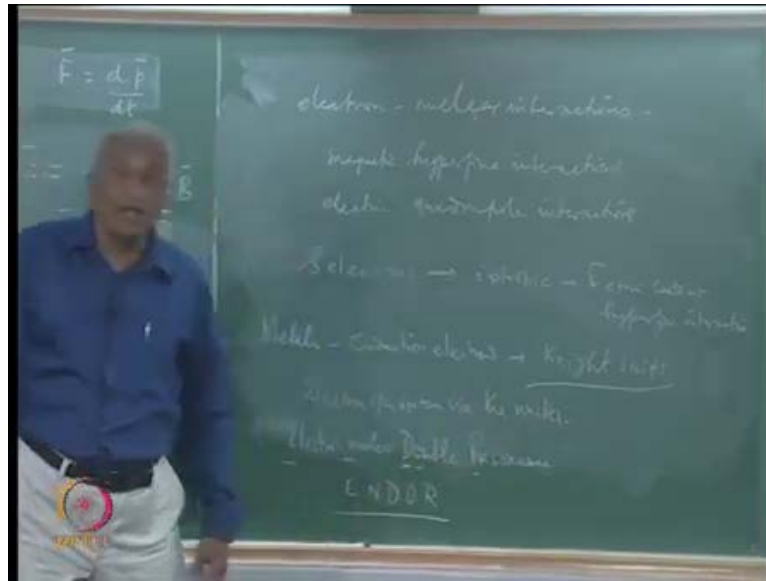 F̄ = dp̄/dt
B̄
electron - nuclear interactions -
magnetic hyperfine interaction
electric quadrupole interaction
S electrons → isotropic → Fermi contact
hyperfine interaction
Metals - conduction electrons → Knight shift
via the nucleus.
Electron nuclear Double Resonance
ENDOR